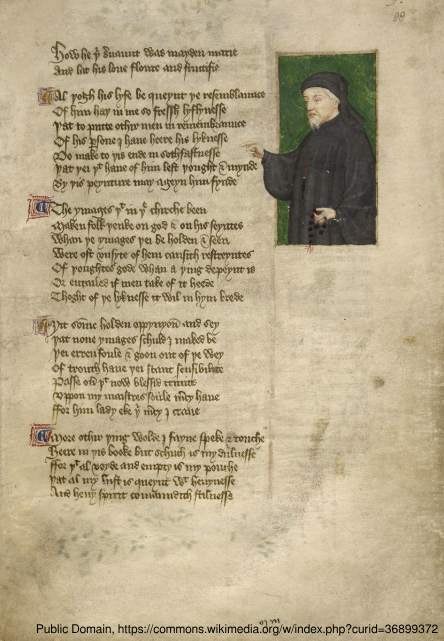 89
How he þi s̉uaunt was mayden marie
And lat his loue floure and fructifie
Al þogh his lyfe be queynt þe resemblaunce
Of him haþ in me so fressh lyflynesse
Þat to putte othir men in remembraunce
Of his ꝑsone I haue heere his lyknesse
Do make to þis ende in sothfastnesse
Þat þei þᵗ haue of him left þought & mynde
By þis peynture may ageyn him fynde
The ymages þᵗ in þᵉ chirche been
Maken folk þenke on god & on his seyntes
Whan þe ymages þei beholden & seen
Were oft vnsyte of hem causith restreyntes
Of þoughtes gode whan a þing depeynt is
Or entailed if men take of it heede
Thoght of þe lyknesse it wil in hym brede
Yit somme holden oppynyoun and sey
Þat none ymages schuld I maked be
Þei erren foule & goon out of þe wey
Of trouth haue þei scant sensibilite
Passe oꝰ þᵗ now blessid trinite
Vppon my maistres soule mꝰcy haue
ffor him lady eke þi mꝰcy I craue
More othir þing wolde I fayne speke & touche
Heere in þis booke but schuch is my dulnesse
ffor þᵗ al voyde and empty is my pouche
Þat al my lust is queynt wᵗ heuynesse
And heuy spirit comaundith stilnesse
Public Domain, https://commons.wikimedia.org/w/index.php?curid=36899372